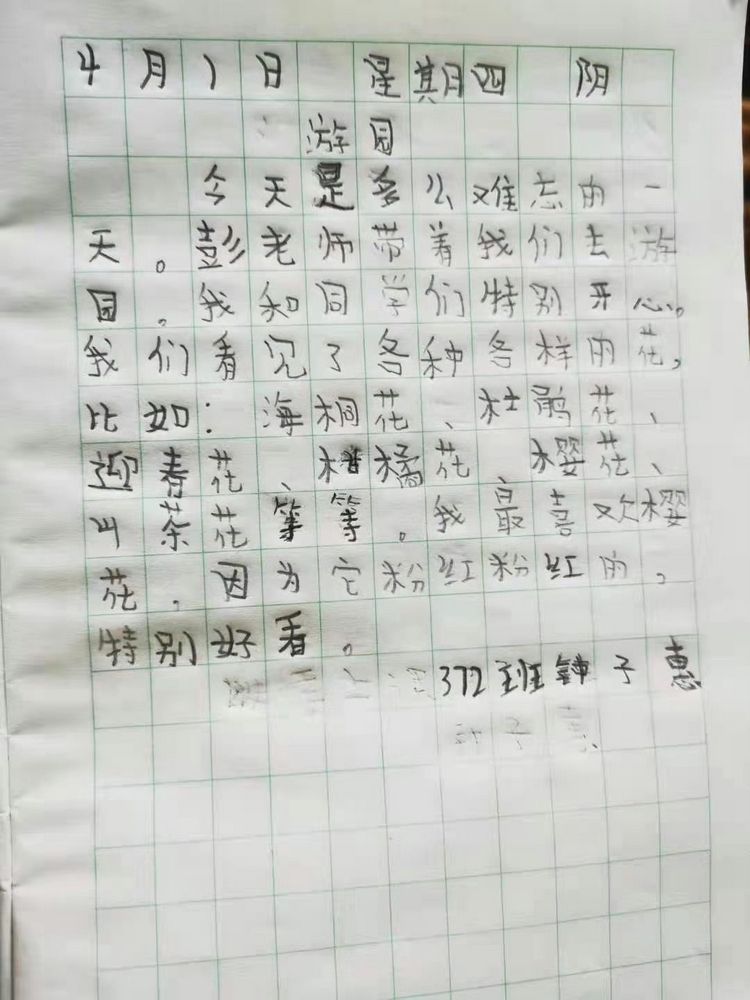 4月1日 星期四 阴
游园
今天是多么难忘的一
天。彭老师带着我们去游
园。我和同学们特别开心。
我们看见了各种各样的花,
比如:海桐花、杜鹃花、
迎春花、橘花、樱花、
山茶花等等。我最喜欢樱
花,因为它粉红粉红的,
特别好看。
372班钟子惠